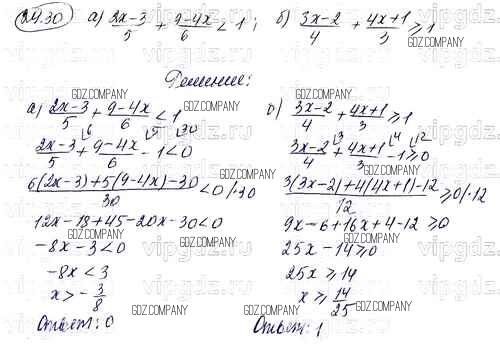 24.30 а) (2x-3)/5 + (9-4x)/6 < 1; б) (3x-2)/4 + (4x+1)/3 ≥ 1
Решение:
а) (2x-3)/5 + (9-4x)/6 < 1
(2x-3)/5 \6 + (9-4x)/6 \5 - 1 \30 < 0
(6(2x-3)+5(9-4x)-30)/30 < 0 /·30
12x-18+45-20x-30<0
-8x-3<0
-8x<3
x>-3/8
Ответ: 0
б) (3x-2)/4 + (4x+1)/3 ≥ 1
(3x-2)/4 \3 + (4x+1)/3 \4 - 1 \12 ≥ 0
(3(3x-2)+4(4x+1)-12)/12 ≥ 0 /·12
9x-6+16x+4-12≥0
25x-14≥0
25x≥14
x≥14/25
Ответ: 1
GDZ.COMPANY
vipgdz.ru